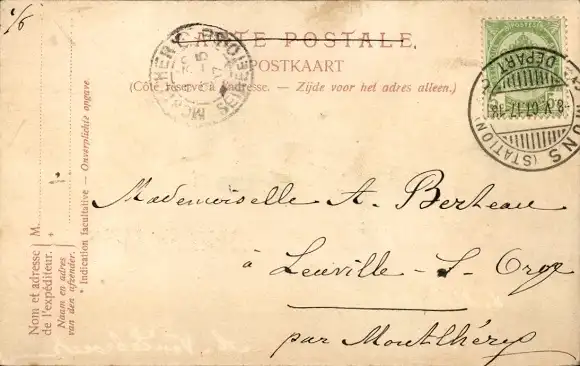 1/6
CARTE POSTALE.
POSTKAART
(Côté réservé à l'adresse. — Zijde voor het adres alleen.)
MONTLHERY
SEINE ET OISE
NS (STATION)
DEPART
Mademoiselle A. Berteau
à Leuville-S-Orge
par Montlhéry
Nom et adresse de l'expéditeur.
Naam en adres van den afzender.
M
* Indication facultative — Onverplichte opgave.